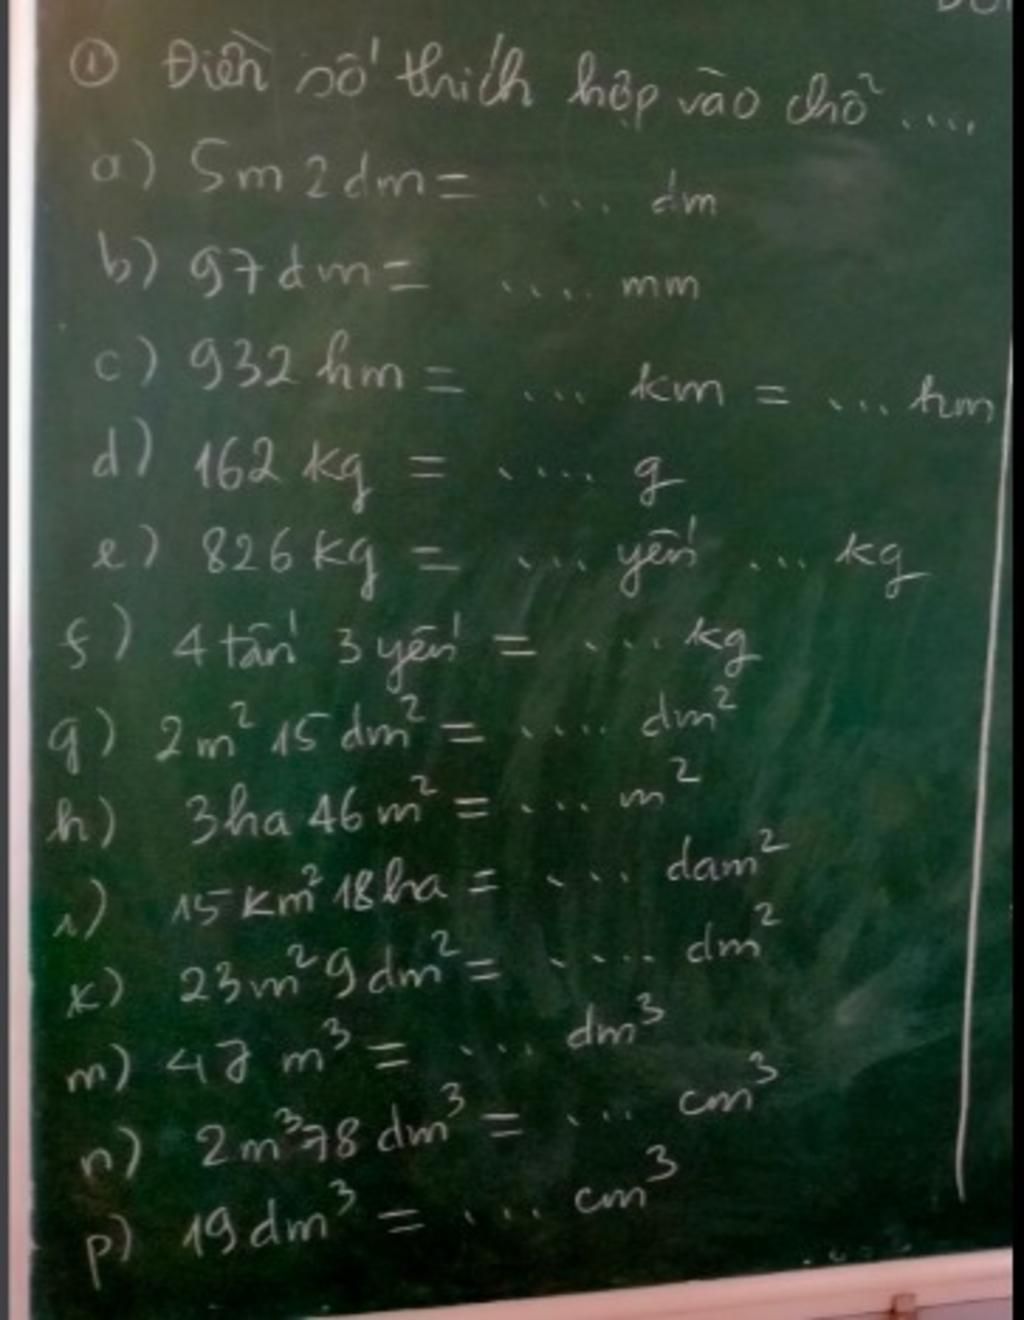 ① Điền số thích hợp vào chỗ ....
a) 5m 2dm = ... dm
b) 97dm = .... mm
c) 932 hm = ... km = ... hm
d) 162 kg = .... g
e) 826 kg = ... yến ... kg
f) 4 tấn 3 yến = ... kg
g) 2m² 15 dm² = .... dm²
h) 3ha 46 m² = ... m²
i) 15 km² 18 ha = ... dam²
k) 23m² 9dm² = .... dm²
m) 47 m³ = ... dm³
n) 2m³ 78 dm³ = ... cm³
p) 19 dm³ = ... cm³